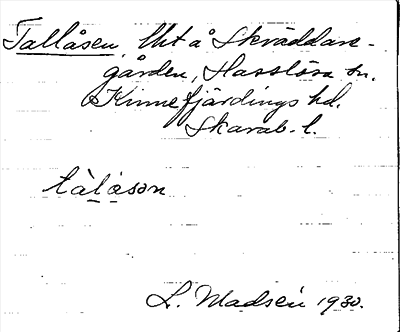 Tallåsen, Utt å Skräddare-
gården, Hasslösa sn.
Kinnefjärdings hd.
Skarab. l.
tàlåsən
L. Madsén 1930.